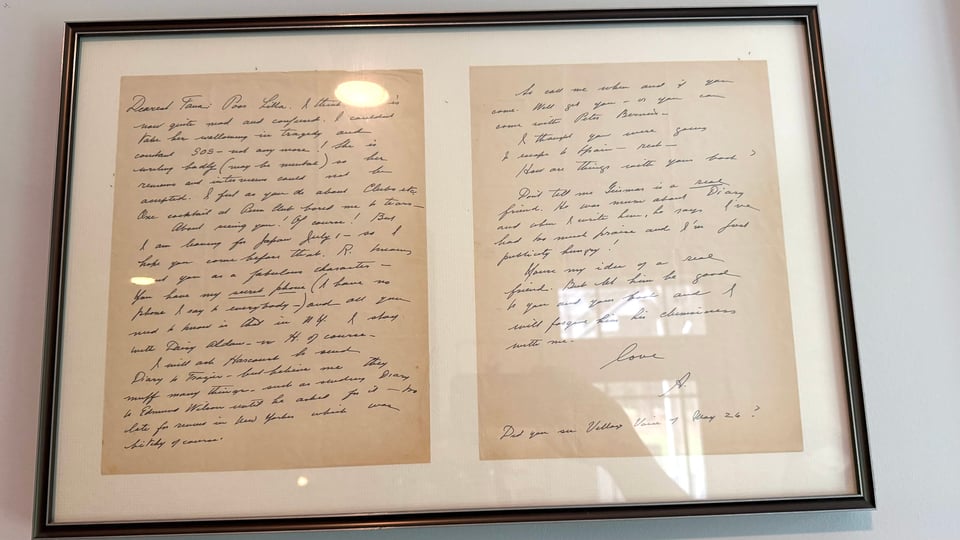 Dearest Tana: Poor Lilla. I think is
now quite mad and confused. I couldn't
take her wallowing in tragedy and
constant SOS – not any more! She is
writing badly (may be mental) so her
reviews and interviews could not be
accepted. I feel as you do about Clubs etc.
One cocktail at Pen Club bored me to tears –
About seeing you! Of course! But
I am leaving for Japan July 1 – so I
hope you come before that. R. knows
you as a fabulous character –
You have my secret phone (I have no
phone I say to everybody –) and all you
need to know is that in N.Y. I stay
with Daisy Aldan – or H. of course –
I will ask Harcourt to send
Diary to Frazier – but believe me they
muff many things – such as sending Diary
to Edmund Wilson until he asked for it – too
late for review in New Yorker which was
bitchy of course.
So call me when and if you
come. Will get you – or you can
come with Peter
I thought you were going
to Spain – rest –
How are things with your book?
Don't tell me is a real
friend. He was mum about Diary
and when I write him, he says I've
had too much praise and I'm just
publicity hungry!
You're my idea of a real
friend. But let him be good
to you and your and I
will forgive him his clumsiness
with me.
Love
A.
Did you see Village Voice of May 26?